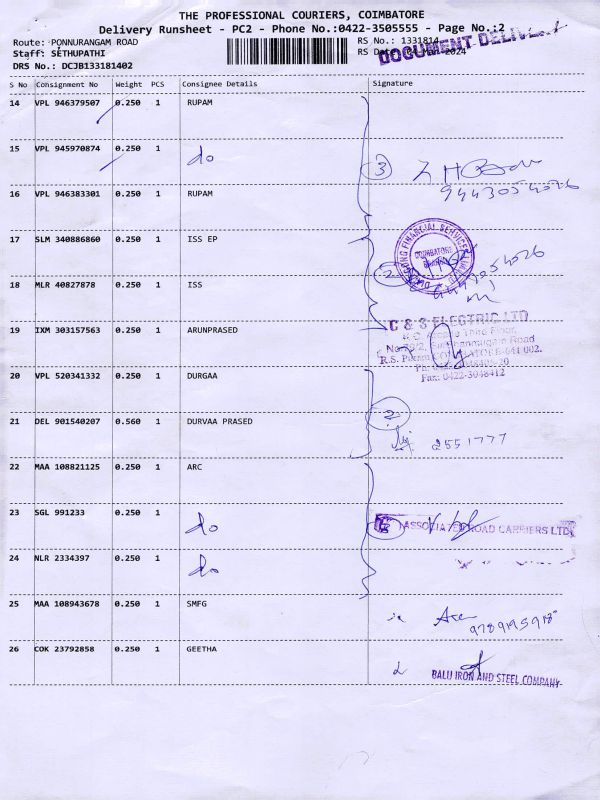 THE PROFESSIONAL COURIERS, COIMBATORE
Delivery Runsheet - PC2 - Phone No.:0422-3505555 - Page No.:2
Route: PONNURANGAM ROAD
RS No.: 1331814
DOCUMENT DELIVERY
Staff: SETHUPATHI
RS Date: -Mar-2024
DRS No.: DCJB133181402
S No Consignment No Weight PCS Consignee Details Signature
14 VPL 946379507 0.250 1 RUPAM
15 VPL 945970874 0.250 1 do
3
9443054026
16 VPL 946383301 0.250 1 RUPAM
17 SLM 340886860 0.250 1 ISS EP
FINANCIAL SERVICES
COIMBATORE
18 MLR 40827878 0.250 1 ISS
2
C & S ELECTRIC LTD
Third Floor,
19 IXM 303157563 0.250 1 ARUNPRASED
Road
R.S. COIMBATORE-641 002.
Fax: 0422-3048412
20 VPL 520341332 0.250 1 DURGAA
21 DEL 901540207 0.560 1 DURVAA PRASED
2
2551777
22 MAA 108821125 0.250 1 ARC
23 SGL 991233 0.250 1 do
ASSOCIATED ROAD CARRIERS LTD
24 NLR 2334397 0.250 1 do
25 MAA 108943678 0.250 1 SMFG
26 COK 23792858 0.250 1 GEETHA
BALU IRON AND STEEL COMPANY